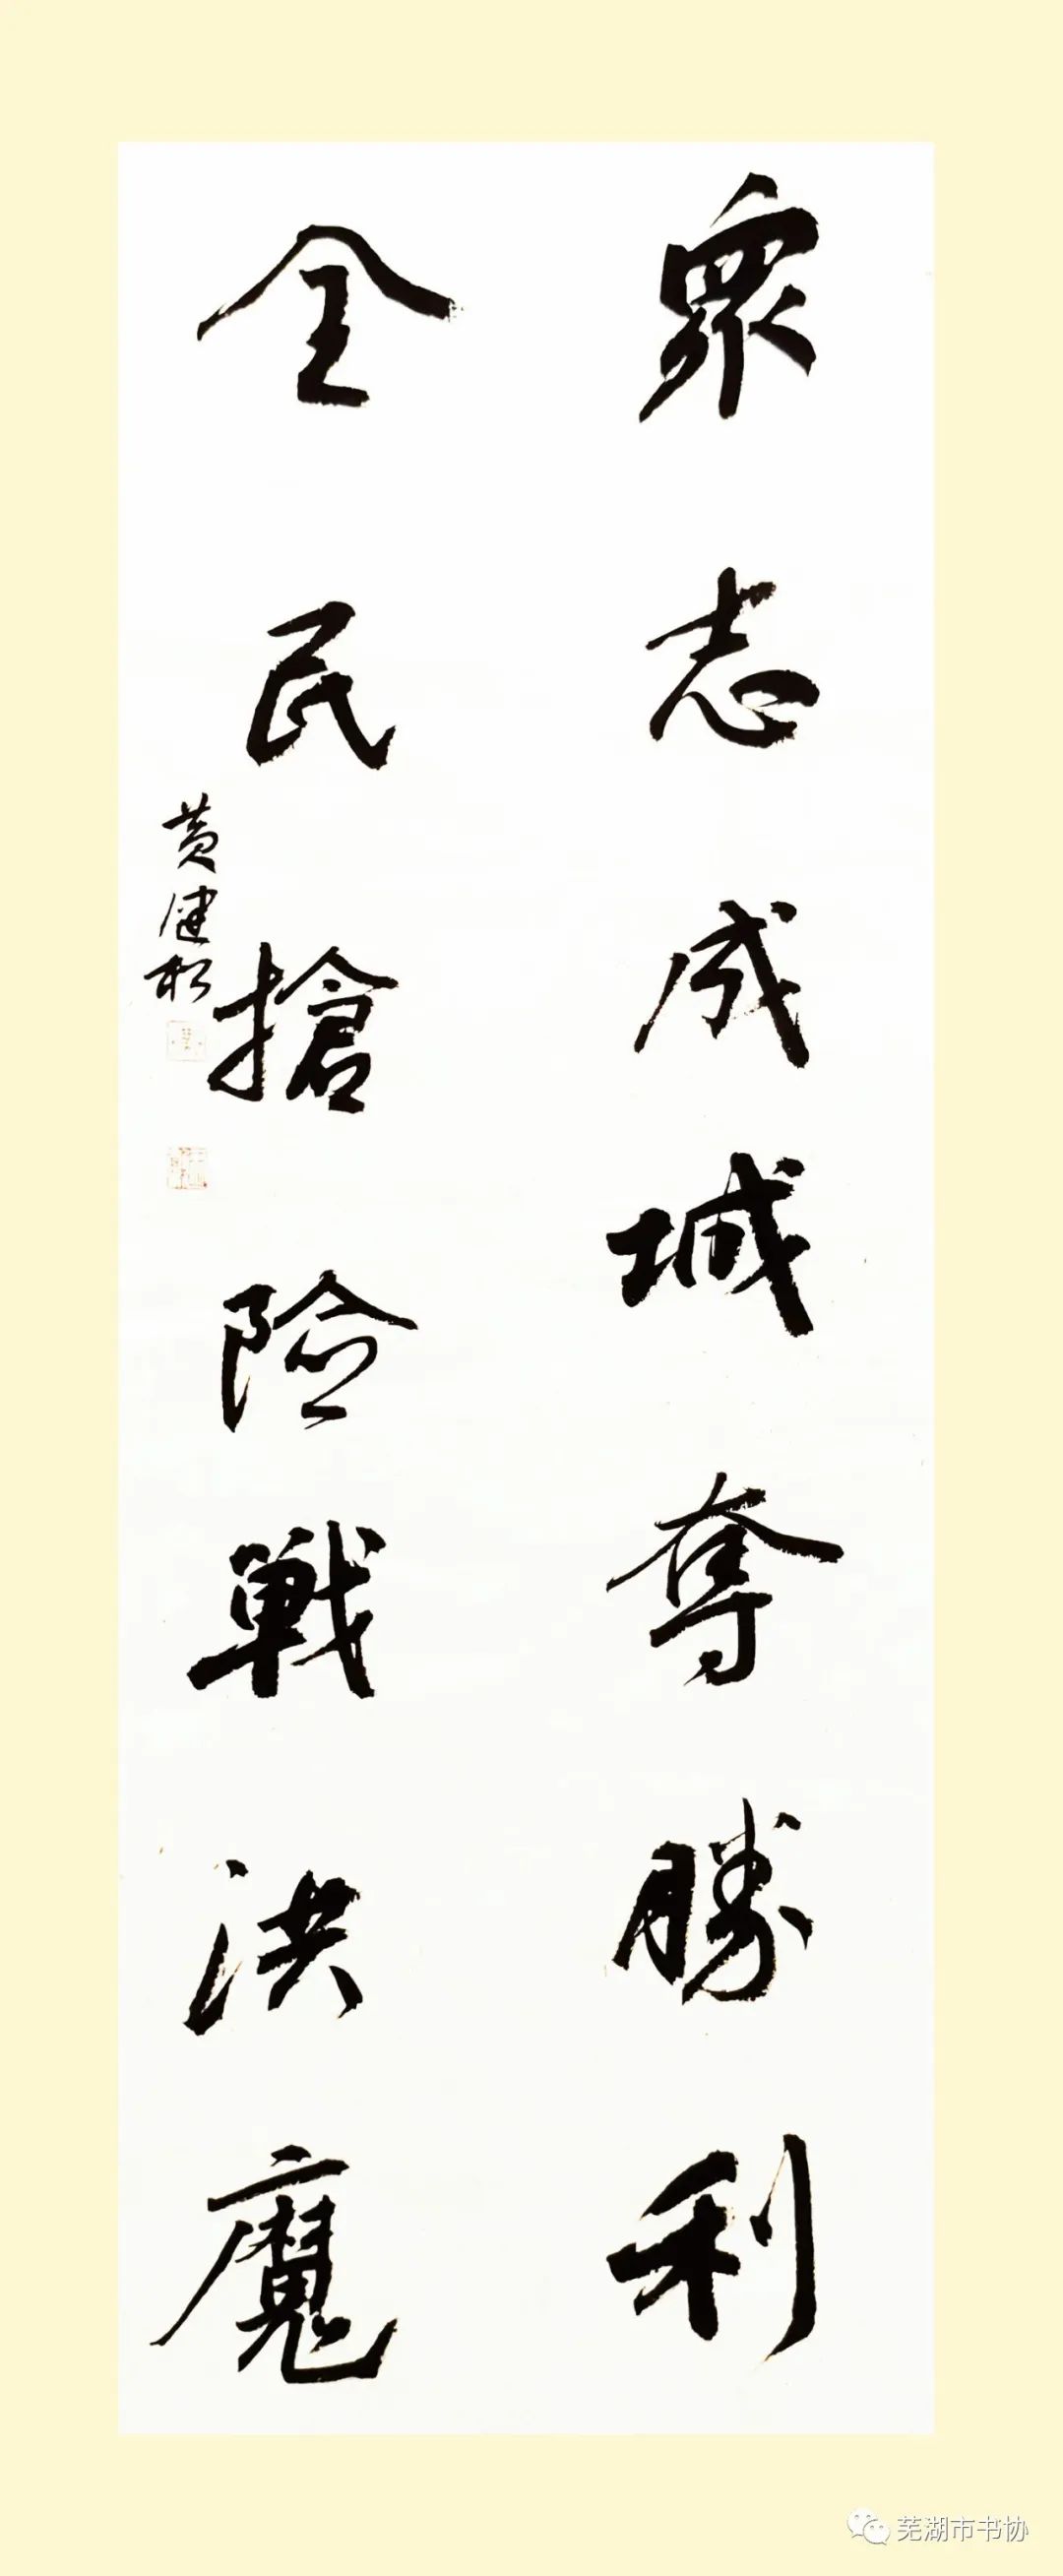 衆志成城奪勝利
全民搶險戰洪魔
黄健松
芜湖市书协